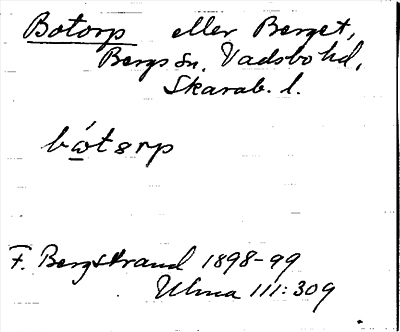 Botorp eller Berget,
Bergs sn, Vadsbo hd,
Skarab. l.
bώtərp
F. Bergstrand 1898-99
Ulma 111:309